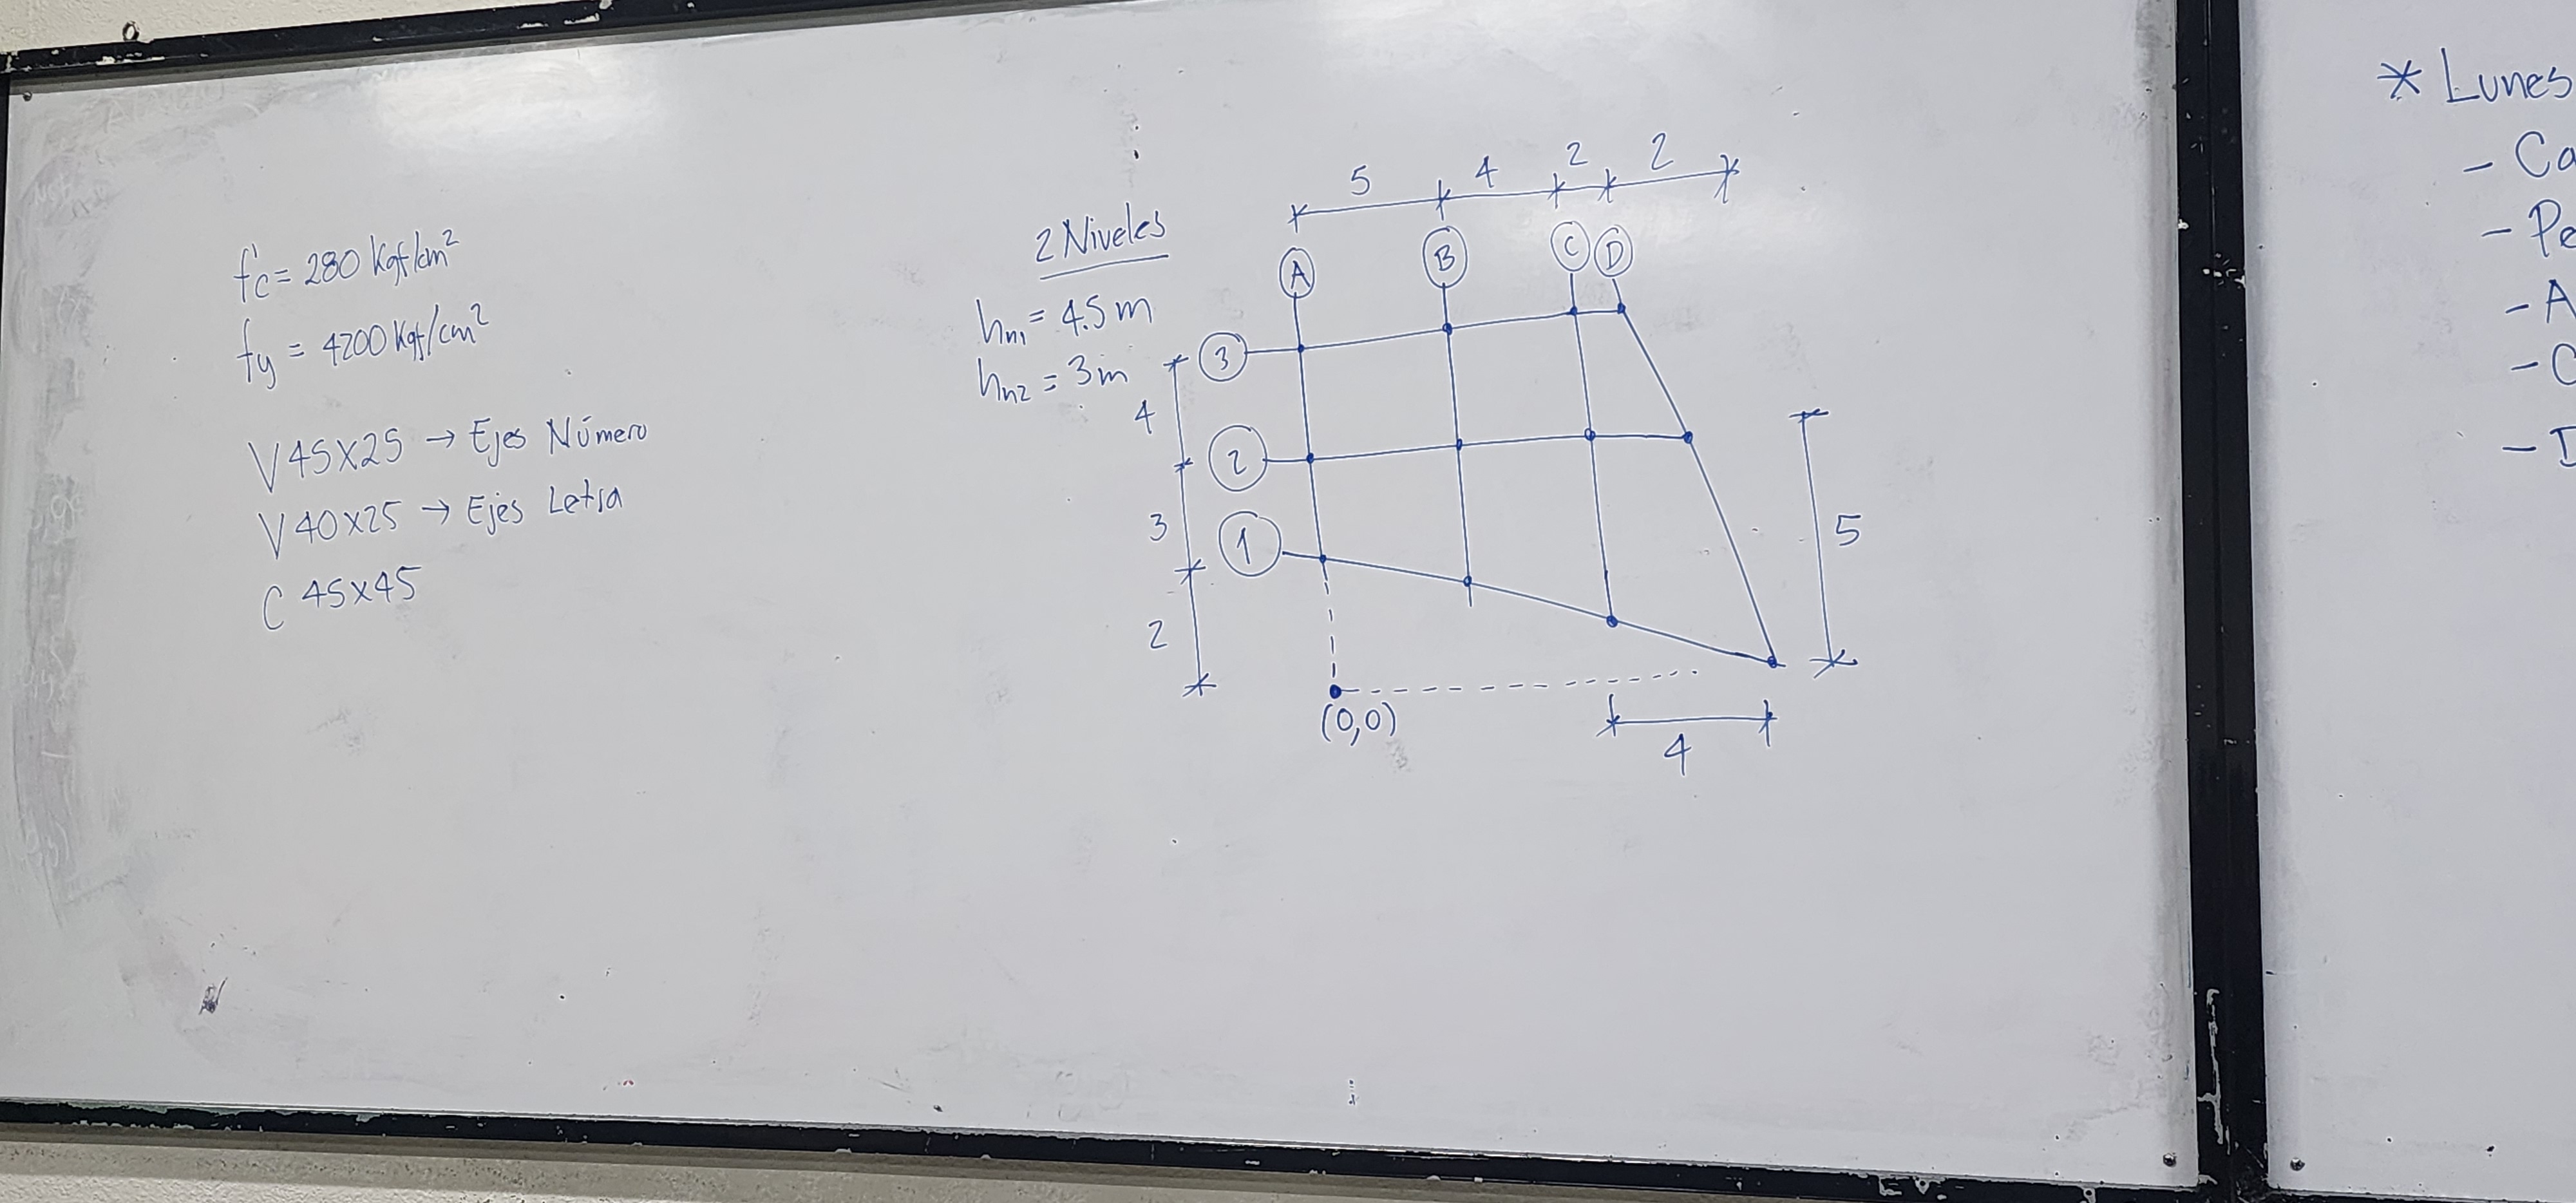 f'c = 280 Kgf/cm²
fy = 4200 Kgf/cm²
V 45X25 → Ejes Número
V 40X25 → Ejes Letra
C 45X45
2 Niveles
hn1 = 4.5 m
hn2 = 3 m
5 4 2 2
A B C D
3
4
2
3
1
2
5
(0,0)
4
* Lunes